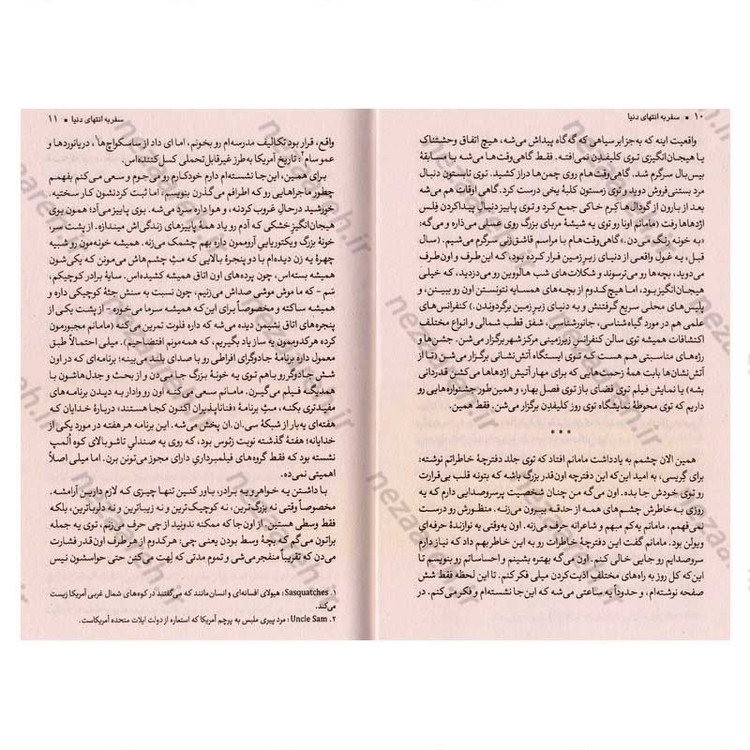 ۱۰ ■ سفر به انتهای دنیا
واقعیت اینه که به‌جز ابر سیاهی که گه‌گاه پیداش می‌شه، هیچ اتفاق وحشتناک
یا هیجان‌انگیزی توی کلیفدن نمی‌افته. فقط گاهی‌وقت‌ها می‌شه با مسابقهٔ
بیس‌بال سرگرم شد. گاهی‌وقت‌ها هم روی چمن‌ها دراز کشید. توی تابستون دنبال
مرد بستنی‌فروش دوید و توی زمستون کلبهٔ یخی درست کرد. گاهی اوقات هم می‌شه
بعد از بارون از گودال‌ها کِرم خاکی جمع کرد و توی پاییز دنبال پیداکردن فلس
اژدهاها رفت (مامانم اونا رو توی یه شیشهٔ مربای بزرگ روی عسلی می‌ذاره و می‌گه:
«به خونه رنگ می‌دن.» گاهی‌وقت‌ها هم با مراسم قاشق‌زنی سرگرم می‌شیم. (سال
قبل، یه غول واقعی از دنیای زیرزمین فرار کرده بود، که این‌طرف و اون‌طرف
می‌دوید، بچه‌ها رو می‌ترسوند و شکلات‌های شب هالووین رو می‌دزدید، که خیلی
هیجان‌انگیز بود، اما هیچ‌کدوم از بچه‌های همسایه نتونستن اون رو ببینن، و
پلیس‌های محلی سریع گرفتنش و به دنیای زیرزمین برگردوندن.) کنفرانس‌های
علمی هم در مورد گیاه‌شناسی، جانورشناسی، شفق قطب شمالی و انواع مختلف
اکتشافات همیشه توی سالن کنفرانس زیرزمینی مرکز شهر برگزار می‌شن. جشن‌ها و
رژه‌های مناسبتی هم هست که توی ایستگاه آتش‌نشانی برگزار می‌شن (تا از
آتش‌نشان‌ها بابت همهٔ زحمت‌هایی که برای مهار آتیش اژدهاها می‌کشن قدردانی
بشه) یا نمایش فیلم توی فضای باز توی فصل بهار، و همین‌طور جشنواره‌هایی رو
داریم که توی محوطهٔ نمایشگاه توی روز کلیفدن برگزار می‌شن. فقط همین.
* * *
همین الان چشمم به یادداشت مامانم افتاد که توی جلد دفترچهٔ خاطراتم نوشته:
برای گریسی، به امید این‌که این دفترچه اون‌قدر بزرگ باشه که بتونه قلب بی‌قرارت
رو توی خودش جا بده. اون می‌گه من چنان شخصیت پرسروصدایی دارم که یه
روزی به خاطرش چشم‌های همه از حدقه بیرون می‌زنه. منظورش رو درست
نمی‌فهمم، مامانم یه‌کم مبهم و شاعرانه حرف می‌زنه. اون یه‌وقتی یه نوازندهٔ حرفه‌ای
ویولن بود. مامانم گفت این دفترچهٔ خاطرات رو به این خاطر بهم داد که نیاز دارم
سروصدایم رو جایی خالی کنم. اون می‌گه بهتره بشینم و احساساتم رو بنویسم تا
این‌که کل روز به راه‌های مختلف اذیت‌کردن میلی فکر کنم. تا این لحظه فقط شش
صفحه نوشته‌ام، و حدوداً یه ساعتی می‌شه که این‌جا نشسته‌ام و فکر می‌کنم. در
سفر به انتهای دنیا ■ ۱۱
واقع، قرار بود تکالیف مدرسه‌ام رو بخونم، اما ای داد از ساسکواچ‌ها۱، دریانوردها و
عمو سام۲؛ تاریخ آمریکا به‌طرز غیرقابل‌تحملی کسل‌کننده‌اس.
برای همین، این‌جا نشسته‌ام دارم خودکارم رو می‌جوم و سعی می‌کنم بفهمم
چطور ماجراهایی رو که اطرافم می‌گذرن بنویسم، اما ثبت کردنشون کار سختیه.
خورشید درحال غروب کردنه، و هوا داره سرد می‌شه. بوی پاییز می‌آد؛ همون بوی
هیجان‌انگیز خشکی که آدم رو یاد همهٔ پاییزهای زندگی‌اش میندازه. از پشت سر،
خونهٔ بزرگ ویکتوریایی آرومون داره بهم چشمک می‌زنه. همیشه خونه‌مون رو شبیه
چهرهٔ یه زن دیده‌ام با دو پنجرهٔ بالایی که مثِ چشم‌هاش می‌مونن که یکی‌شون
همیشه بسته‌اس، چون پرده‌های اون اتاق همیشه کشیده‌اس. سایهٔ برادر کوچیکم،
سَم - که ما موش موشی صداش می‌زنیم، چون نسبت به سنش جثهٔ کوچیکی داره و
همیشه ساکته و مخصوصاً برای این‌که همیشه سرما می‌خوره - از پشت یکی از
پنجره‌های اتاق نشیمن دیده می‌شه که داره فلوت تمرین می‌کنه (مامانم مجبورمون
کرده هرکدومون یه ساز یاد بگیریم، که همه‌مونم افتضاحیم). میلی احتمالاً طبق
معمول داره برنامهٔ جادوگرای افراطی رو با صدای بلند می‌بینه؛ برنامه‌ای که در اون
شش جادوگر رو باهم توی یه خونهٔ بزرگ جا می‌دن و از بحث و جدل‌هاشون با
همدیگه فیلم می‌گیرن. مامانم سعی می‌کنه اون رو وادار به دیدن برنامه‌های
مفیدتری بکنه، مثِ برنامهٔ «فناناپذیران اکنون کجا هستند»؛ دربارهٔ خدایان که
هفته‌ای یه‌بار از شبکهٔ سی.ان.ان پخش می‌شه. این برنامه هر هفته در مورد یکی از
خدایانه؛ هفتهٔ گذشته نوبت زئوس بود، که روی یه صندلی تاشو بالای کوه اُلمپ
نشسته بود که فقط گروه‌های فیلمبرداری دارای مجوز می‌تونن برن. اما میلی اصلاً
اهمیتی نمی‌ده.
با داشتن یه خواهر و یه برادر، باور کنین تنها چیزی که لازم دارین آرامشه.
مخصوصاً وقتی نه بزرگ‌ترین، نه کوچیک‌ترین و نه زیباترین و نه دلرباترین، بلکه
فقط وسطی هستین. از اون‌جا که ممکنه ندونید از چی حرف می‌زنم، توی یه جمله
براتون می‌گم که بچهٔ وسط بودن یعنی چی: هرکدوم از هر طرف اون‌قدر فشارت
می‌دن که تقریباً منفجر می‌شی و تموم مدتی که لِهت می‌کنن حتی حواسشون نیس
۱. Sasquatches: هیولای افسانه‌ای و انسان‌مانند که می‌گفتند در کوه‌های شمال غربی آمریکا زیست
می‌کند.
۲. Uncle Sam: مرد پیری ملبس به پرچم آمریکا که استعاره از دولت ایلات متحده آمریکاست.